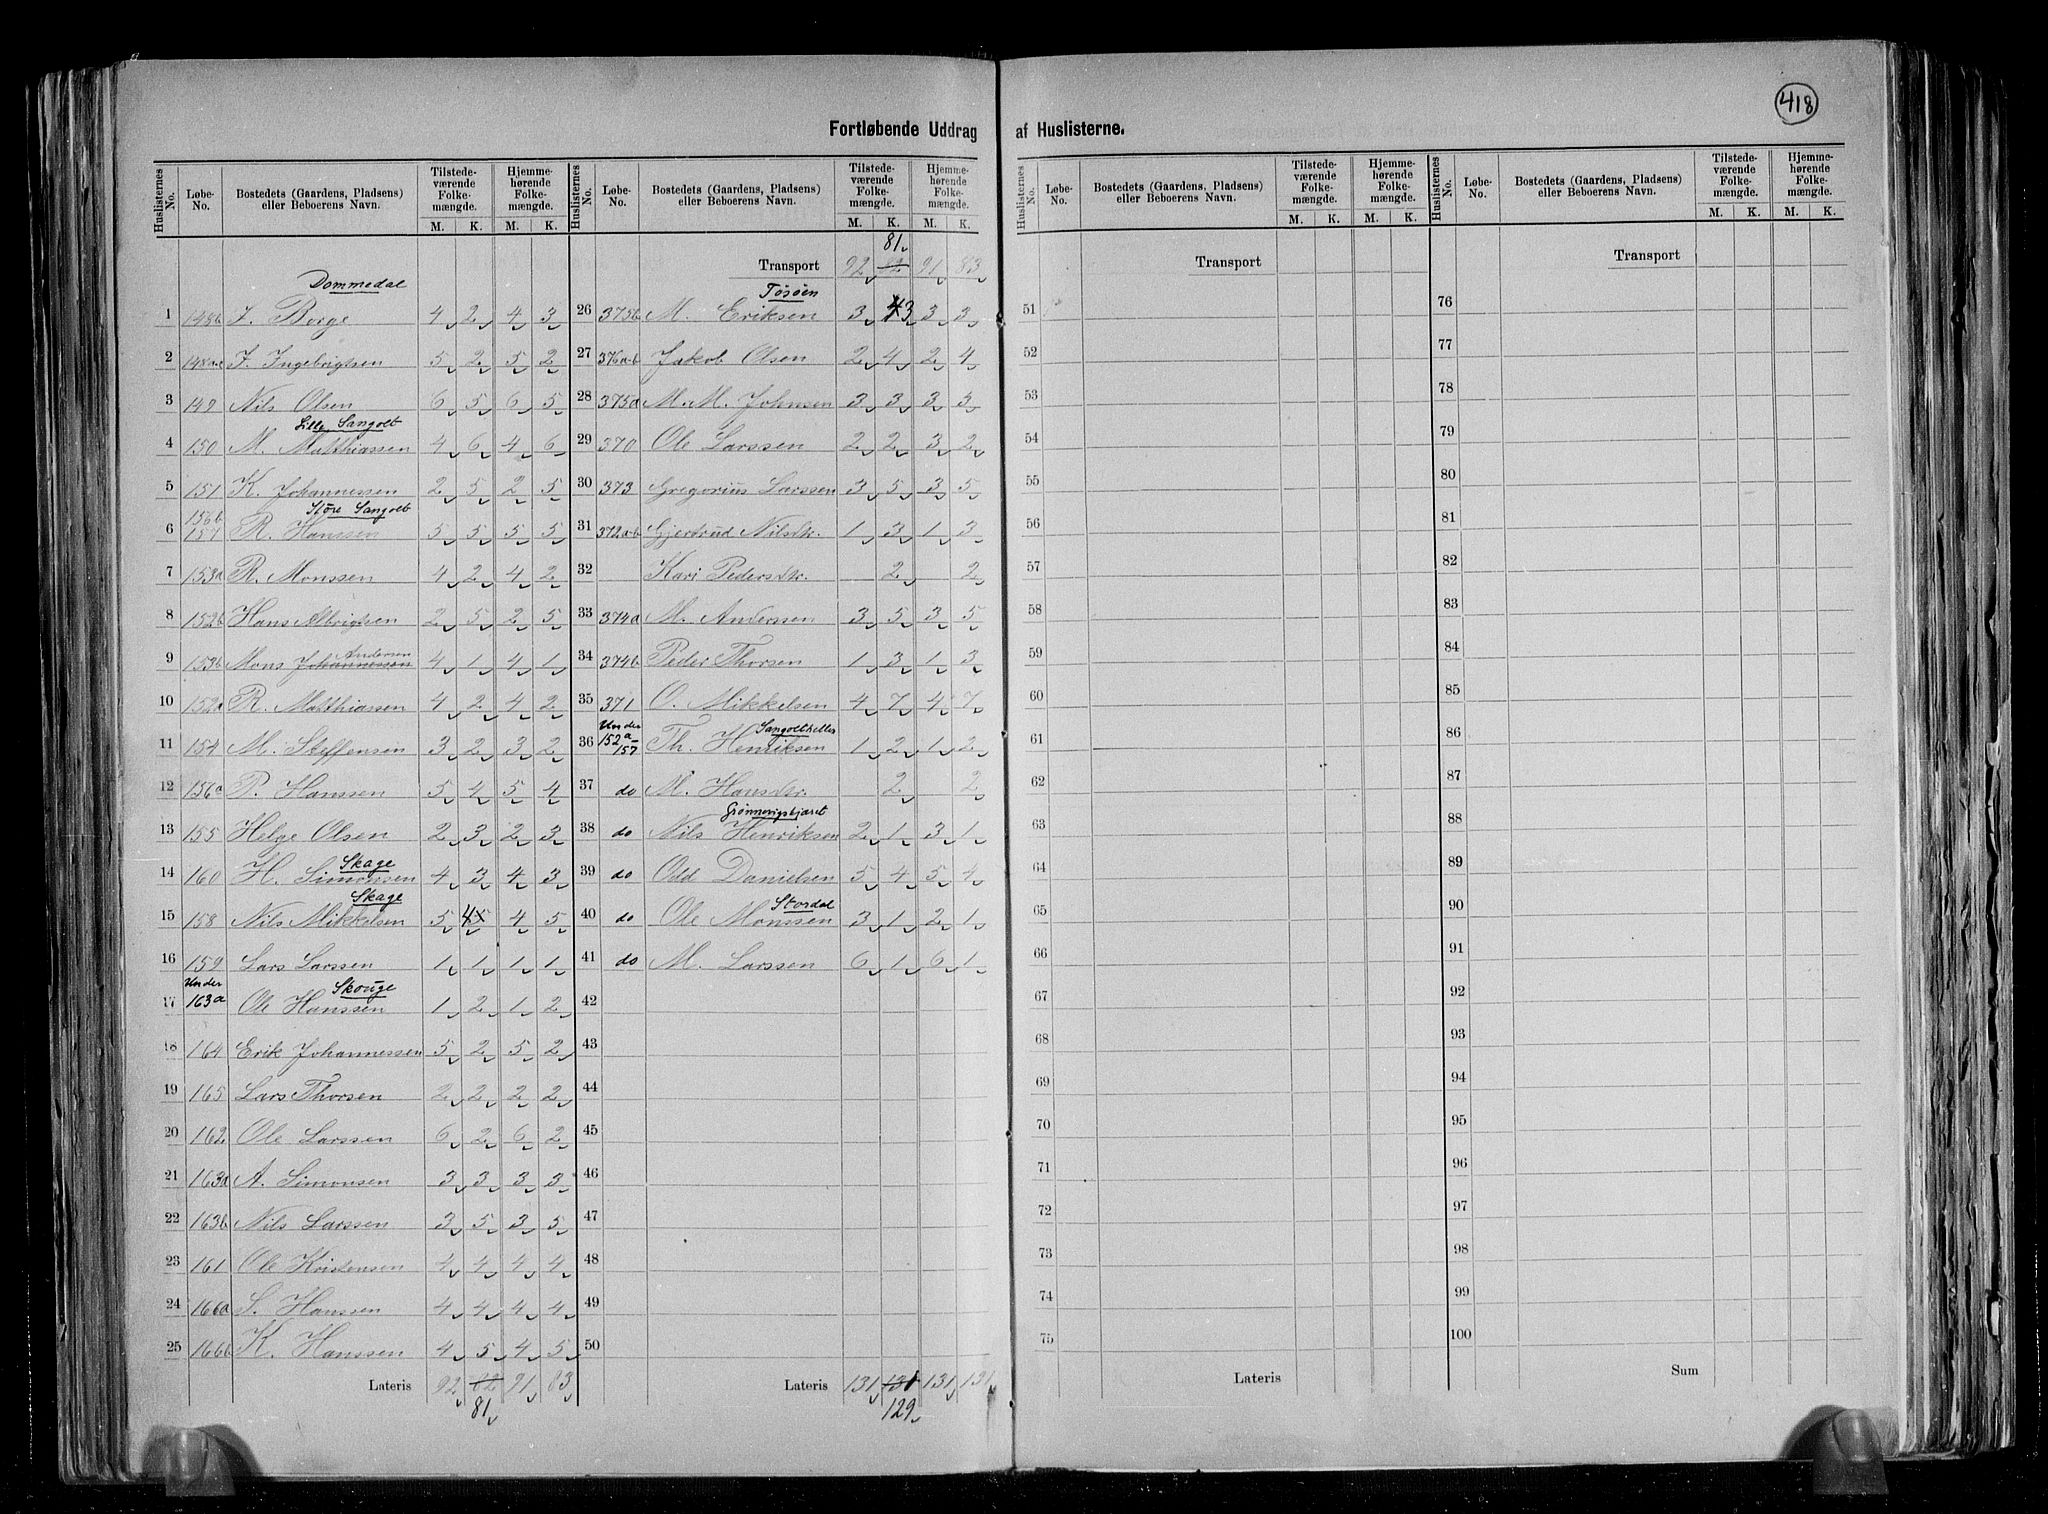 418
Fortløbende Uddrag af Huslisterne.
Huslisternes No. Løbe-No. Bostedets (Gaardens, Pladsens) eller Beboerens Navn. Tilstedeværende Folkemængde. M. K. Hjemmehørende Folkemængde. M. K.
Dommedal
1 148b J. Borge 4 2 4 3
2 I. Ingebrigtsen 5 2 5 2
3 149 Nils Olsen 6 5 6 5
Lille Sangolt
4 150 M. Matthiassen 4 6 4 6
5 151 K. Johannessen 2 5 2 5
Store Sangolt
6 156b 157 R. Hanssen 5 5 5 5
7 153a R. Monssen 4 2 4 2
8 152b Hans Albrigtsen 2 5 2 5
9 153b Mons Johannessen Andersen 4 1 4 1
10 152a R. Matthiassen 4 2 4 2
11 154 M. Steffensen 3 2 3 2
12 156a P. Hanssen 5 4 5 4
13 155 Helge Olsen 2 3 2 3
Skage
14 160 H. Simonssen 4 3 4 3
Skage
15 158 Nils Mikkelsen 5 4 5 4 5
16 159 Lars Larssen 1 1 1 1
Skouge
17 Under 163a Ole Hanssen 1 2 1 2
18 164 Erik Johannessen 5 2 5 2
19 165 Lars Thorsen 2 2 2 2
20 162 Ole Larssen 6 2 6 2
21 163a A. Simonsen 3 3 3 3
22 163b Nils Larssen 3 5 3 5
23 161 Ole Kristensen 4 4 4 4
24 166a S. Hanssen 4 4 4 4
25 166b K. Hanssen 4 5 4 5
Lateris 92 82 91 83
81
Huslisternes No. Løbe-No. Bostedets (Gaardens, Pladsens) eller Beboerens Navn. Tilstedeværende Folkemængde. M. K. Hjemmehørende Folkemængde. M. K.
81
Transport 92 82 91 83
Tösöen
26 375b M. Eriksen 3 4 3 3 3
27 376a-b Jakob Olsen 2 4 2 4
28 375a M. M. Johnsen 3 3 3 3
29 370 Ole Larssen 2 2 3 2
30 373 Gregorius Larssen 3 5 3 5
31 372a-b Gjertrud Nilsdtr. 1 3 1 3
32 Kari Pedersdtr. 2 2
33 374a M. Anderssen 3 5 3 5
34 374b Peder Thorsen 1 3 1 3
35 371 O. Mikkelsen 4 7 4 7
Sangoltkellen
36 Under 152a-157 Th. Henriksen 1 2 1 2
37 do M. Hansdtr. 2 2
38 do Nils Henriksen 2 1 3 1
39 do Odd Danielsen 5 4 5 4
Stordal
40 do Ole Monssen 3 1 2 1
41 do M. Larssen 6 1 6 1
42
43
44
45
46
47
48
49
50
Lateris 131 131 131 131
129
Huslisternes No. Løbe-No. Bostedets (Gaardens, Pladsens) eller Beboerens Navn. Tilstedeværende Folkemængde. M. K. Hjemmehørende Folkemængde. M. K.
Transport
51
52
53
54
55
56
57
58
59
60
61
62
63
64
65
66
67
68
69
70
71
72
73
74
75
Lateris
Huslisternes No. Løbe-No. Bostedets (Gaardens, Pladsens) eller Beboerens Navn. Tilstedeværende Folkemængde. M. K. Hjemmehørende Folkemængde. M. K.
Transport
76
77
78
79
80
81
82
83
84
85
86
87
88
89
90
91
92
93
94
95
96
97
98
99
100
Sum